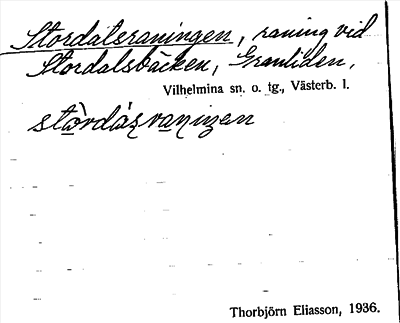 Stordalsraningen, raning vid
Stordalsbäcken, Granliden,
Vilhelmina sn. o. tg., Västerb. l.
Thorbjörn Eliasson, 1936.